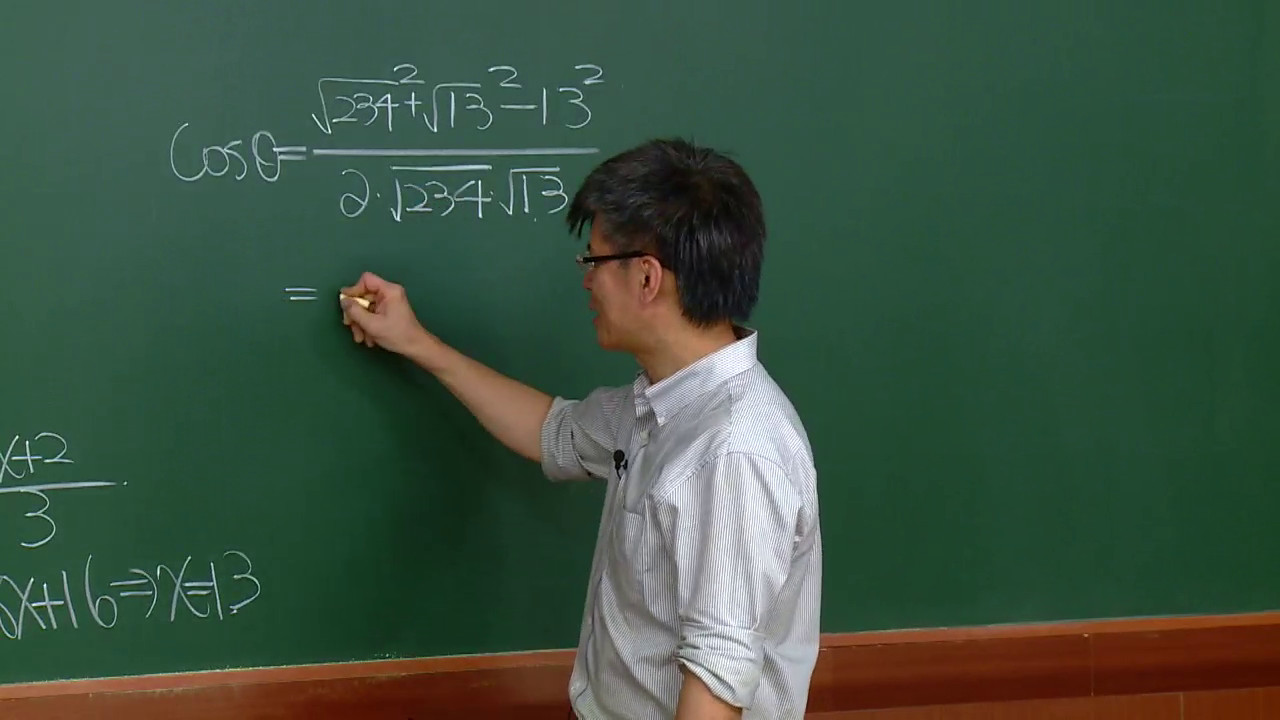 cosθ = (√234² + √13² - 13²) / (2·√234·√13)
=
x+2 / 3
x+16 ⇒ x=13